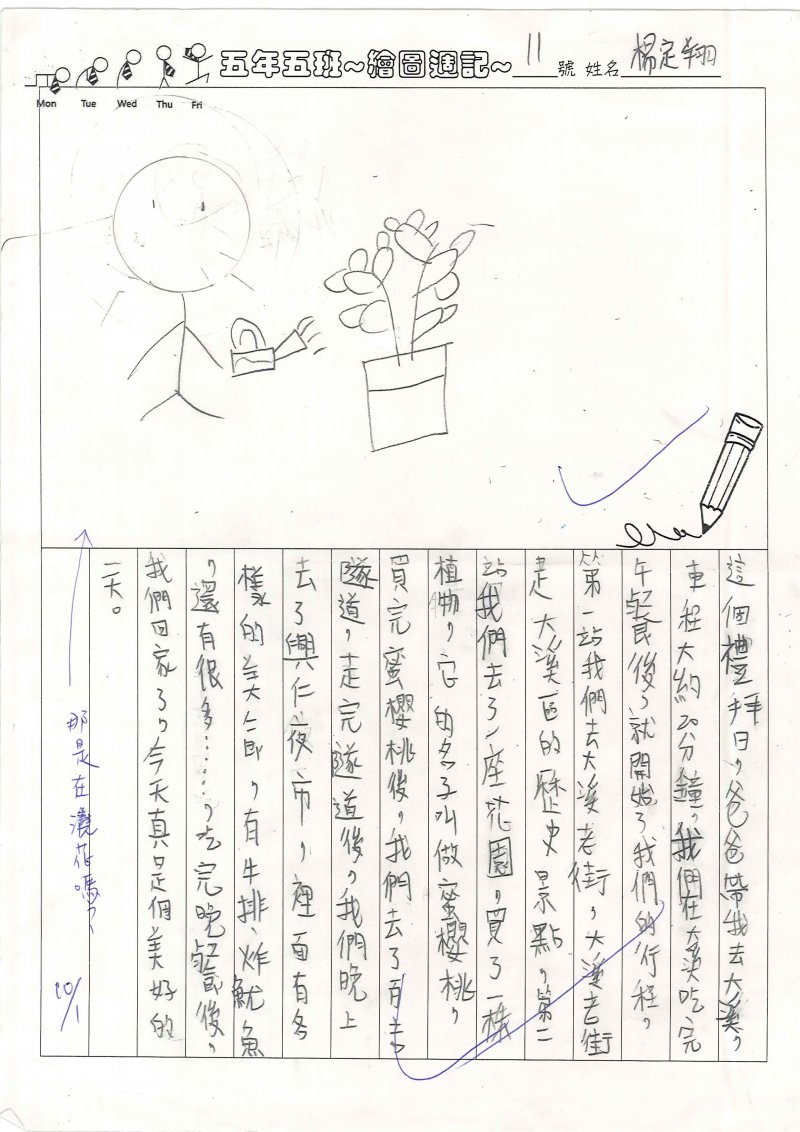 五年五班~繪圖週記~ 11 號 姓名 楊定翔
Mon Tue Wed Thu Fri
這個禮拜日，爸爸帶我去大溪，
車程大約20分鐘，我們在大溪吃完
午餐後，就開始了我們的行程，
第一站我們去大溪老街，大溪老街
是大溪區的歷史景點，第二
站我們去了一座花園，買了一株
植物，它的名子叫做蜜櫻桃，
買完蜜櫻桃後，我們去了百吉
隧道，走完隧道後，我們晚上
去了興仁夜市，裡面有各
樣的美食，有牛排、炸魷魚
，還有很多……，吃完晚餐後，
我們回家了，今天真是個美好的
一天。
那是在澆花嗎？
10/1